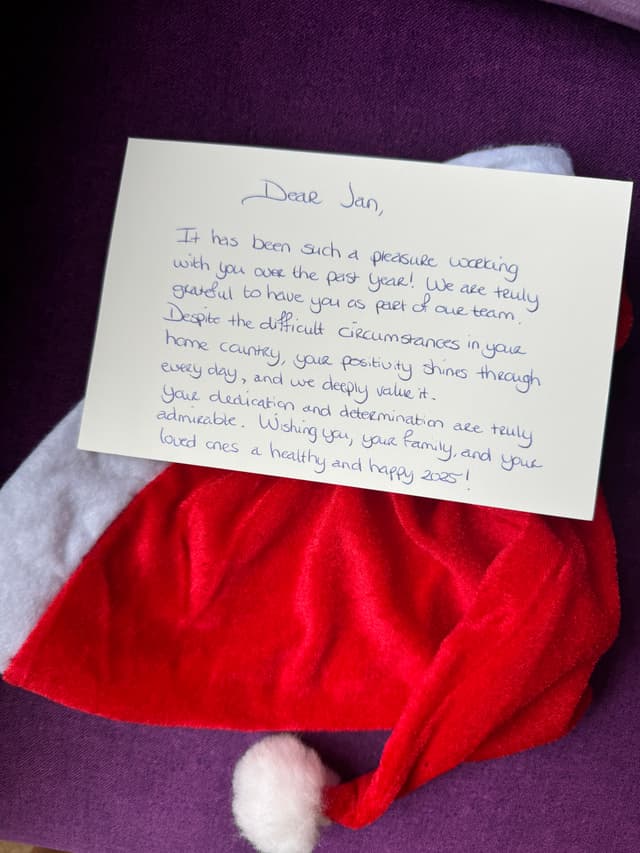 Dear Jan,
It has been such a pleasure working
with you over the past year! We are truly
grateful to have you as part of our team.
Despite the difficult circumstances in your
home country, your positivity shines through
every day, and we deeply value it.
Your dedication and determination are truly
admirable. Wishing you, your family, and your
loved ones a healthy and happy 2025!